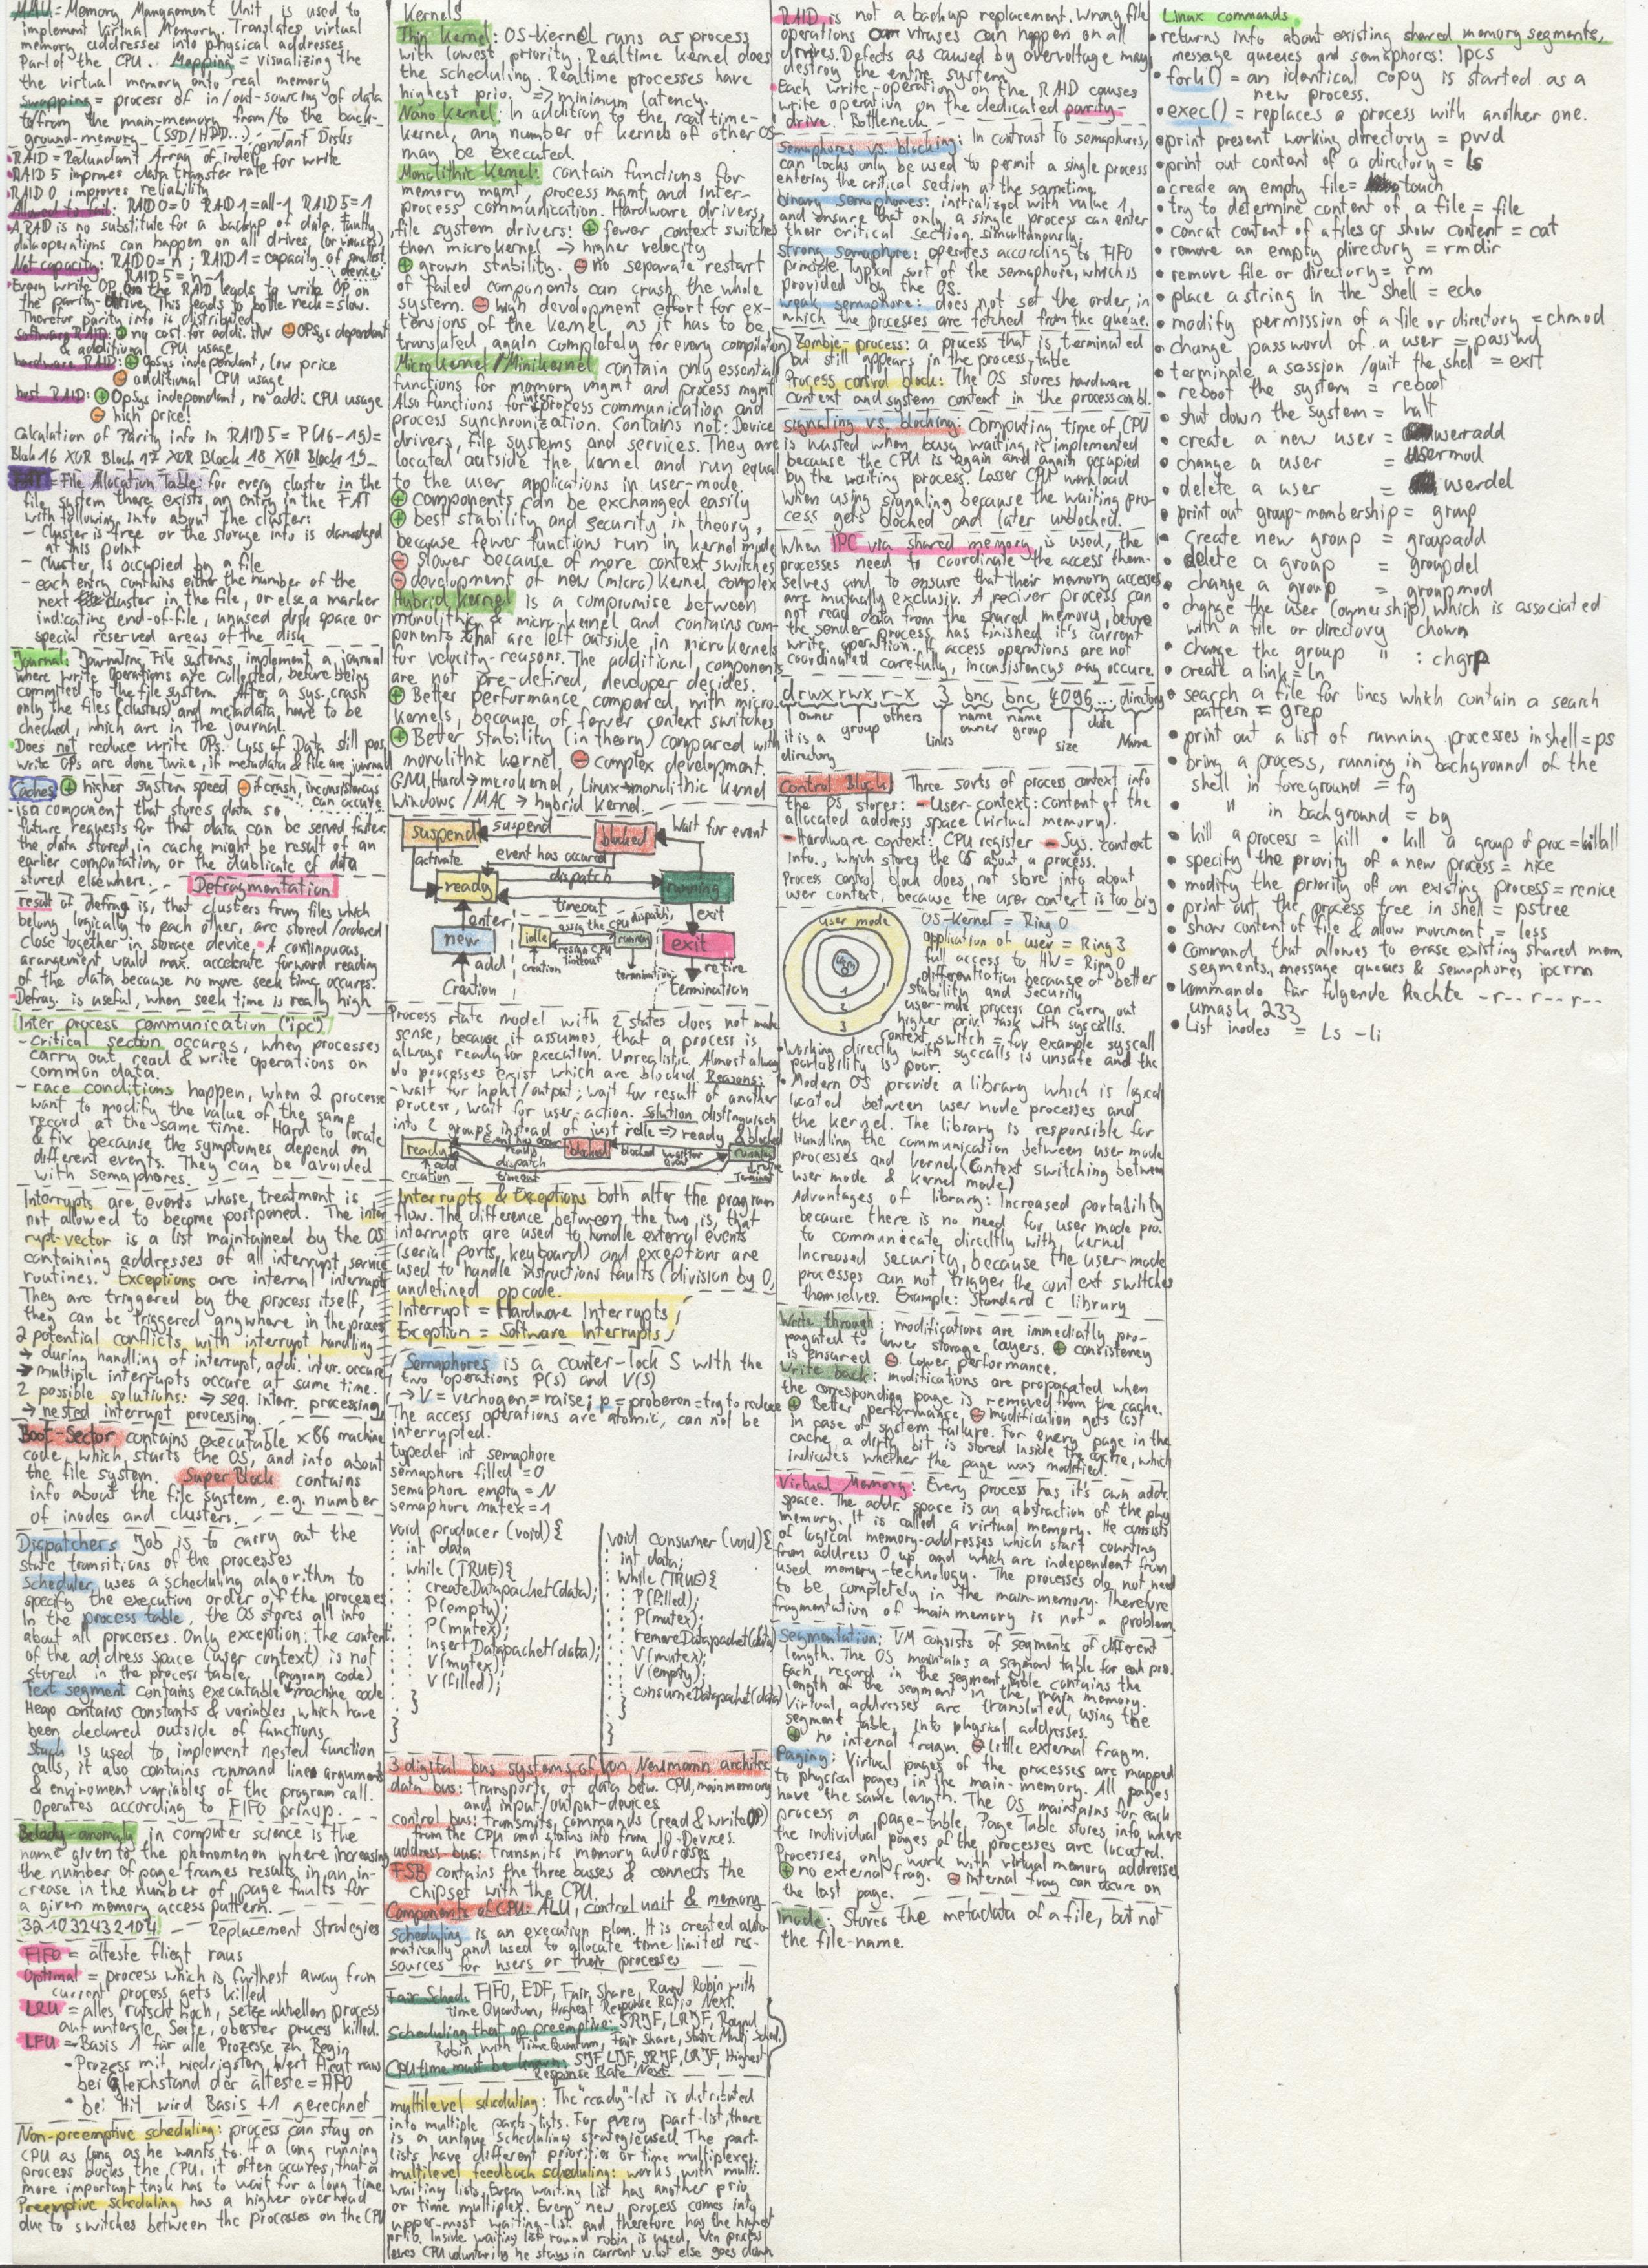 MMU = Memory Management Unit is used to
implement Virtual Memory. Translates virtual
memory addresses into physical addresses
Part of the CPU. Mapping = visualizing the
the virtual memory onto real memory
Swapping = process of in/out-sourcing of data
to/from the main-memory from/to the back-
ground-memory (SSD/HDD...)
RAID = Redundant Array of independant Disks
RAID 5 improves data transfer rate for write
RAID 0 improves reliability
Allowed to fail: RAID0=0 RAID1=all-1 RAID5=1
A RAID is no substitute for a backup of data. Faulty
data operations can happen on all drives, (or viruses)
Net capacity: RAID0=n; RAID1=capacity of smallest device
RAID5=n-1
Every write OP on the RAID leads to write OP on
the parity-drive. This leads to bottle neck=slow.
Therefor parity info is distributed
software RAID: + no cost for addi. HW - OPSys dependant
& additional CPU usage
hardware RAID: + OpSys independant, low price
- additional CPU usage
host RAID: + OpSys independant, no addi. CPU usage
- high price!
Calculation of Parity info in RAID5 = P(16-19)=
Block 16 XOR Block 17 XOR Block 18 XOR Block 19
FAT = File Allocation Table: for every cluster in the
file system there exists an entry in the FAT
with following info about the cluster:
- Cluster is free or the storage info is damaged
at this point
- Cluster is occupied by a file
- each entry contains either the number of the
next cluster in the file, or else a marker
indicating end-of-file, unused disk space or
special reserved areas of the disk
Journal: Journaling File systems, implement a journal
where write operations are collected, before being
commited to the file system. After a sys. crash
only the files (clusters) and metadata have to be
checked, which are in the journal.
Does not reduce write OPs. Loss of Data still pos.
write OPs are done twice, if metadata & file are journal
Caches + higher system speed - if crash, inconsistencys
can occure
- is a component that stores data so
future requests for that data can be served faster.
the data stored in cache might be result of an
earlier computation, or the dublicate of data
stored elsewhere.
Defragmentation
result of defrag is, that clusters from files which
belong logically to each other, are stored/ordered
close together in storage device. A continuous
arangement would max. accelerate forward reading
of the data because no more seek time occures.
Defrag. is useful, when seek time is really high
Inter process communication ("ipc")
- critical section occures, when processes
carry out read & write operations on
common data.
- race conditions happen, when 2 processe
want to modify the value of the same
record at the same time. Hard to locate
& fix because the symptomes depend on
different events. They can be avoided
with semaphores.
Interrupts are events whose treatment is
not allowed to become postponed. The inter
rupt-vector is a list maintained by the OS
containing addresses of all interrupt service
routines. Exceptions are internal interrupts
They are triggered by the process itself,
they can be triggered anywhere in the process
2 potential conflicts with interrupt handling
→ during handling of interrupt, addi. inter. occure
→ multiple interrupts occure at same time.
2 possible solutions: → seq. interr. processing
→ nested interrupt processing.
Boot-Sector contains executable x86 machine
code, which starts the OS, and info about
the file system. Super Block contains
info about the file system, e.g. number
of inodes and clusters.
Dispatchers Job is to carry out the
state transitions of the processes
Scheduler, uses a scheduling algorithm to
specify the execution order of the processes
In the process table, the OS stores all info
about all processes. Only exception: the content
of the address space (user context) is not
stored in the process table. (program code)
Text segment contains executable machine code
Heap contains constants & variables, which have
been declared outside of functions
Stack is used to implement nested function
calls, it also contains command line arguments
& enviroment variables of the program call.
Operates according to FIFO princip.
Belady-anomaly in computer science is the
name given to the phenomenon where increasing
the number of page frames results in an in-
crease in the number of page faults for
a given memory access pattern.
321032432104 - Replacement Strategies
FIFO = älteste fliegt raus
Optimal = process which is furthest away from
current process, gets killed
LRU = alles rutscht hoch, setze aktuellen process
auf unterste Seite, oberster process killed.
LFU = Basis 1 für alle Prozesse zu Begin
• Prozess mit niedrigstem Wert fliegt raus
bei Gleichstand der älteste = FIFO
• bei Hit wird Basis +1 gerechnet
Non-preemptive scheduling: process can stay on
CPU as long as he wants to. If a long running
process blocks the CPU, it often occures, that a
more important task has to wait for a long time
Preemptive scheduling has a higher overhead
due to switches between the processes on the CPU
Kernels
Thin Kernel: OS-kernel runs as process
with lowest priority. Realtime kernel does
the scheduling. Realtime processes have
highest prio. => minimum latency.
Nano Kernel: In addition to the real time-
kernel, any number of kernels of other OS
may be executed.
Monolithic Kernel: contain functions for
memory mgmt, process mgmt and inter-
process communication. Hardware drivers,
file system drivers: + fewer context switches
than microkernel → higher velocity
+ grown stability. - no separate restart
of failed components can crash the whole
system. - high development effort for ex-
tensions of the kernel, as it has to be
translated again completely for every compilation
Microkernel/Minikernel contain only essential
functions for memory mgmt and process mgmt
Also functions for inter process communication and
process synchronization. Contains not: Device
drivers, file systems and services. They are
located outside the kernel and run equal
to the user applications in user-mode
+ components can be exchanged easily
+ best stability and security in theory,
because fewer functions run in kernel mode
- slower because of more context switches
- development of new (micro) kernel complex
Hybrid Kernel is a compromise between
monolithic & micro-kernel and contains com-
ponents that are left outside in microkernels
for velocity-reasons. The additional components
are not pre-defined, developer decides.
+ Better performance compared with micro-
kernels, because of fewer context switches
+ Better stability (in theory) compared with
monolithic kernel. - complex development.
GNU Hurd → microkernel, Linux → monolithic kernel
Windows / MAC → hybrid kernel.
suspend suspend blocked wait for event
activate event has occured
ready dispatch running
timeout
enter exit
new idle assign the CPU running dispatch exit
resign CPU timeout
add creation termination retire
Creation termination
Process state model with 2 states does not make
sense, because it assumes, that a process is
always ready for execution. Unrealistic. Almost always
do processes exist which are blocked. Reasons:
- wait for input/output; wait for result of another
process, wait for user-action. Solution distinguisch
into 2 groups instead of just idle => ready & blocked
ready Event has occured blocked blocked wait for event running
ready
add dispatch
creation timeout
Interrupts & Exceptions both alter the program
flow. The difference between the two is, that
interrupts are used to handle external events
(serial ports, keyboard) and exceptions are
used to handle instructions faults (division by 0,
undefined opcode.
Interrupt = Hardware Interrupts
Exception = Software Interrupts
Semaphores is a counter-lock S with the
two operations P(s) and V(s)
→ V = verhogen = raise; p = proberen = try to reduce
The access operations are atomic, can not be
interrupted.
typedef int semaphore
semaphore filled = 0
semaphore empty = N
semaphore mutex = 1
void producer (void) {
int data
while (TRUE) {
createDatapacket(data);
P(empty);
P(mutex);
insertDatapacket(data);
V(mutex);
V(filled);
}
}
void consumer (void) {
int data;
while (TRUE) {
P(filled);
P(mutex);
removeDatapacket(data)
V(mutex);
V(empty);
consumeDatapacket(data)
}
}
3 digital bus systems of von Neumann architec
data bus: transports of data betw. CPU, main memory
and input/output-devices
control bus: transmits commands (read & write OP)
from the CPU and status info from IO-Devices.
address-bus: transmits memory addresses
FSB contains the three busses & connects the
chipset with the CPU.
Components of CPU: ALU, control unit & memory
Scheduling is an execution plan. It is created auto-
matically and used to allocate time limited res-
sources for users or their processes
Fair Sched: FIFO, EDF, Fair Share, Round Robin with
time Quantum, Highest Response Ratio Next.
Scheduling that op preemptive: SRJF, LRJF, Round
Robin with Time Quantum, Fair share, Static Multi Sched.
CPU time must be known: SJF, LJF, SRJF, LRJF, Highest
Response Rate Next.
multilevel scheduling: The "ready"-list is distributed
into multiple parts lists. For every part-list, there
is a unique scheduling strategie used. The part-
lists have different priorities or time multiplexes
multilevel feedback scheduling: works with multi.
waiting lists. Every waiting list has another prio
or time multiplex. Every new process comes into
upper-most waiting-list and therefore has the highest
prio. Inside waiting list round robin is used. Wen process
leaves CPU voluntarily he stays in current w.list else goes down
RAID is not a backup replacement. Wrong file
operations or viruses can happen on all
drives. Defects as caused by overvoltage may
destroy the entire system
Each write-operation on the RAID causes
write operation on the dedicated parity-
drive. Bottleneck
Semaphores vs. blocking: In contrast to semaphores,
can locks only be used to permit a single process
entering the critical section at the sametime.
binary semaphores: initialized with value 1,
and ensure that only a single process can enter
their critical section simultaneously.
strong semaphore: operates according to FIFO
principle. Typical sort of the semaphore, which is
provided by the OS.
weak semaphore: does not set the order, in
which the processes are fetched from the queue.
Zombie-process: a process that is terminated
but still appears in the process-table
Process control block: The OS stores hardware
context and system context in the process con.bl.
signaling vs. blocking: Computing time of CPU
is wasted when busy waiting is implemented
because the CPU is again and again occupied
by the waiting process. Lesser CPU workload
when using signaling because the waiting pro-
cess gets blocked and later unblocked.
When IPC via shared memory is used, the
processes need to coordinate the access them-
selves and to ensure that their memory accesses
are mutually exclusiv. A reciver process can
not read data from the shared memory, before
the sender process has finished it's current
write operation. If access operations are not
coordinated carefully, inconsistencys may occure
drwx rwx r-x 3 bnc bnc 4096 ... directory
owner others name name date
it is a group links owner group size Name
directory
Control Block Three sorts of process context info
the OS stores: - User-context: content of the
allocated address space (virtual memory).
- Hardware context: CPU register - Sys. context
Info., which stores the OS about a process.
Process control block does not store info about
user context, because the user context is too big
user mode
1
2
3
OS-Kernel = Ring 0
application of user = Ring 3
full access to HW = Ring 0
differentiation because of better
stability and security
user-mode process can carry out
higher priv. task with syscalls.
context switch = for example syscall
• Working directly with syscalls is unsafe and the
portability is poor.
• Modern OS provide a library which is logical
located between user mode processes and
the kernel. The library is responsible for
Handling the communication between user mode
processes and kernel (Context switching between
user mode & kernel mode)
Advantages of library: Increased portability
because there is no need for user mode pro.
to communicate directly with kernel
Increased security, because the user-mode
processes can not trigger the context switches
themselves. Example: Standard C library
Write through: modifications are immediatly pro-
pagated to lower storage layers. + consistency
is ensured - Lower performance.
Write back: modifications are propagated when
the corresponding page is removed from the cache.
+ Better performance - modification gets lost
in case of system failure. For every page in the
cache, a dirty bit is stored inside the cache, which
indicates whether the page was modified.
Virtual Memory: Every process has it's own addr.
space. The addr. space is an abstraction of the phy
memory. It is called a virtual memory. He consists
of logical memory-addresses which start counting
from address 0 up and which are independent from
used memory-technology. The processes do not need
to be completely in the main-memory. Therefore
fragmentation of main memory is not a problem
Segmentation: VM consists of segments of different
length. The OS maintains a segment table for each pro.
Each record in the segment table contains the
length of the segment in the main memory.
Virtual addresses are translated, using the
segment table, into physical addresses.
+ no internal fragm. - little external fragm.
Paging: Virtual pages of the processes are mapped
to physical pages in the main-memory. All pages
have the same length. The OS maintains for each
process a page-table. Page Table stores info, where
the individual pages of the processes are located.
Processes, only work with virtual memory addresses
+ no external frag. - internal frag can occure on
the last page.
Inode: Stores the metadata of a file, but not
the file-name.
Linux commands
• returns info about existing shared memory segments,
message queues and semaphores: ipcs
• fork() = an identical copy is started as a
new process.
• exec() = replaces a process with another one.
• print present working directory = pwd
• print out content of a directory = ls
• create an empty file = touch
• try to determine content of a file = file
• concat content of a files or show content = cat
• remove an empty directory = rmdir
• remove file or directory = rm
• place a string in the shell = echo
• modify permission of a file or directory = chmod
• change password of a user = passwd
• terminate a session /quit the shell = exit
• reboot the system = reboot
• shut down the system = halt
• create a new user = useradd
• change a user = usermod
• delete a user = userdel
• print out group-membership = group
• Create new group = groupadd
• delete a group = groupdel
• change a group = groupmod
• change the user (ownership) which is associated
with a file or directory chown
• change the group " : chgrp
• create a link = ln
• search a file for lines which contain a search
pattern = grep
• print out a list of running processes in shell = ps
• bring a process, running in background of the
shell in foreground = fg
• " in background = bg
• kill a process = kill • kill a group of proc = killall
• specify the prority of a new process = nice
• modify the priority of an existing process = renice
• print out the process tree in shell = pstree
• show content of file & allow movement = less
• Command, that allowes to erase existing shared mem
segments, message queues & semaphores, ipcrm
• Kommando für folgende Rechte -r-- r-- r--
umask 233
• List inodes = Ls -li